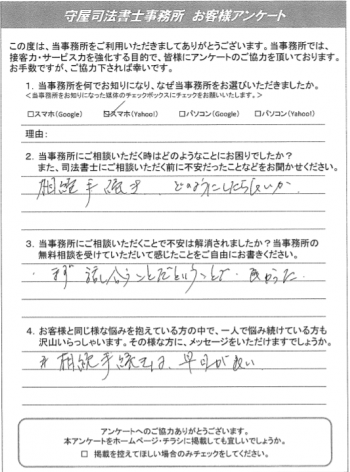 守屋司法書士事務所 お客様アンケート
この度は、当事務所をご利用いただきましてありがとうございます。当事務所では、
接客力・サービス力を強化する目的で、皆様にアンケートのご協力を頂いております。
お手数ですが、ご協力下されば幸いです。
1. 当事務所を何でお知りになり、なぜ当事務所をお選びいただきましたか。
<当事務所をお知りになった媒体のチェックボックスにチェックをお願いいたします。>
□スマホ(Google) ☑スマホ(Yahoo!) □パソコン(Google) □パソコン(Yahoo!)
理由:
2. 当事務所にご相談いただく時はどのようなことにお困りでしたか?
また、司法書士にご相談いただく前に不安だったことなどをお聞かせください。
相続手続き どのようにしたらいいか
3. 当事務所にご相談いただくことで不安は解消されましたか?当事務所の
無料相談を受けていただいて感じたことをご自由にお書きください。
・まず 話し合うことだということで
4. お客様と同じ様な悩みを抱えている方の中で、一人で悩み続けている方も
沢山いらっしゃいます。その様な方に、メッセージをいただけますでしょうか。
相続手続きは、早目がよい
アンケートへのご協力ありがとうございます。
本アンケートをホームページ・チラシに掲載しても宜しいでしょうか。
□ 掲載を控えてほしい場合のみチェックをしてください。